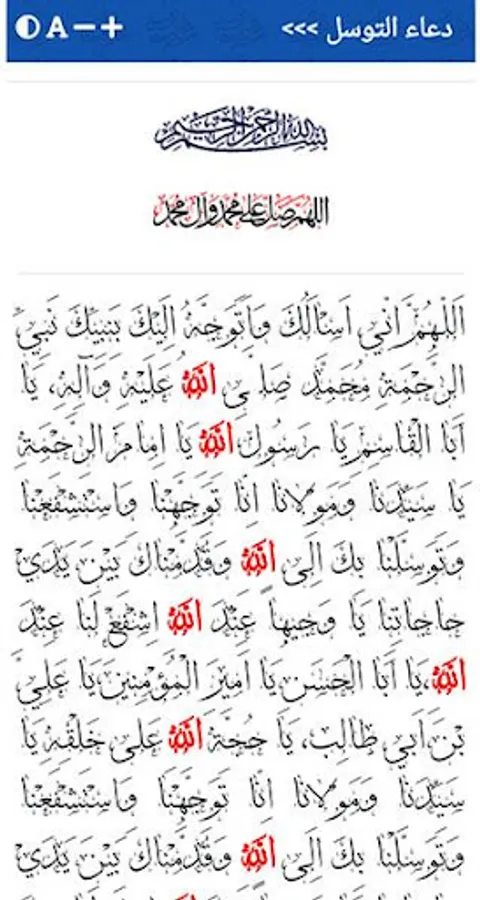 دعاء التوسل >>>
A − +
بسم الله الرحمن الرحيم
اللهم صل على محمد وآل محمد
اَللّهُمَّ اِنّي اَسْاَلُكَ وَاَتَوَجَّهُ اِلَيْكَ بِنَبِيِّكَ نَبِيِّ
الرَّحْمَةِ مُحَمَّد صَلَّى اللهُ عَلَيْهِ وَآلِهِ، يَا
اَبَا الْقَاسِمِ يَا رَسُولَ اللهِ يَا اِمامَ الرَّحْمَةِ
يَا سَيِّدَنا وَمَوْلانا اِنّا تَوَجَّهْنا وَاسْتَشْفَعْنا
وَتَوَسَّلْنا بِكَ اِلَى اللهِ وَقَدَّمْناكَ بَيْنَ يَدَيْ
حاجاتِنا يَا وَجيهاً عِنْدَ اللهِ اِشْفَعْ لَنا عِنْدَ
اللهِ، يَا اَبَا الْحَسَنِ يَا اَميرَ الْمُؤْمِنينَ يَا عَلِيَّ
بْنَ اَبي طالِب، يَا حُجَّةَ اللهِ عَلى خَلْقِهِ يَا
سَيِّدَنا وَمَوْلانا اِنّا تَوَجَّهْنا وَاسْتَشْفَعْنا
وَتَوَسَّلْنا بِكَ اِلَى اللهِ وَقَدَّمْناكَ بَيْنَ يَدَيْ